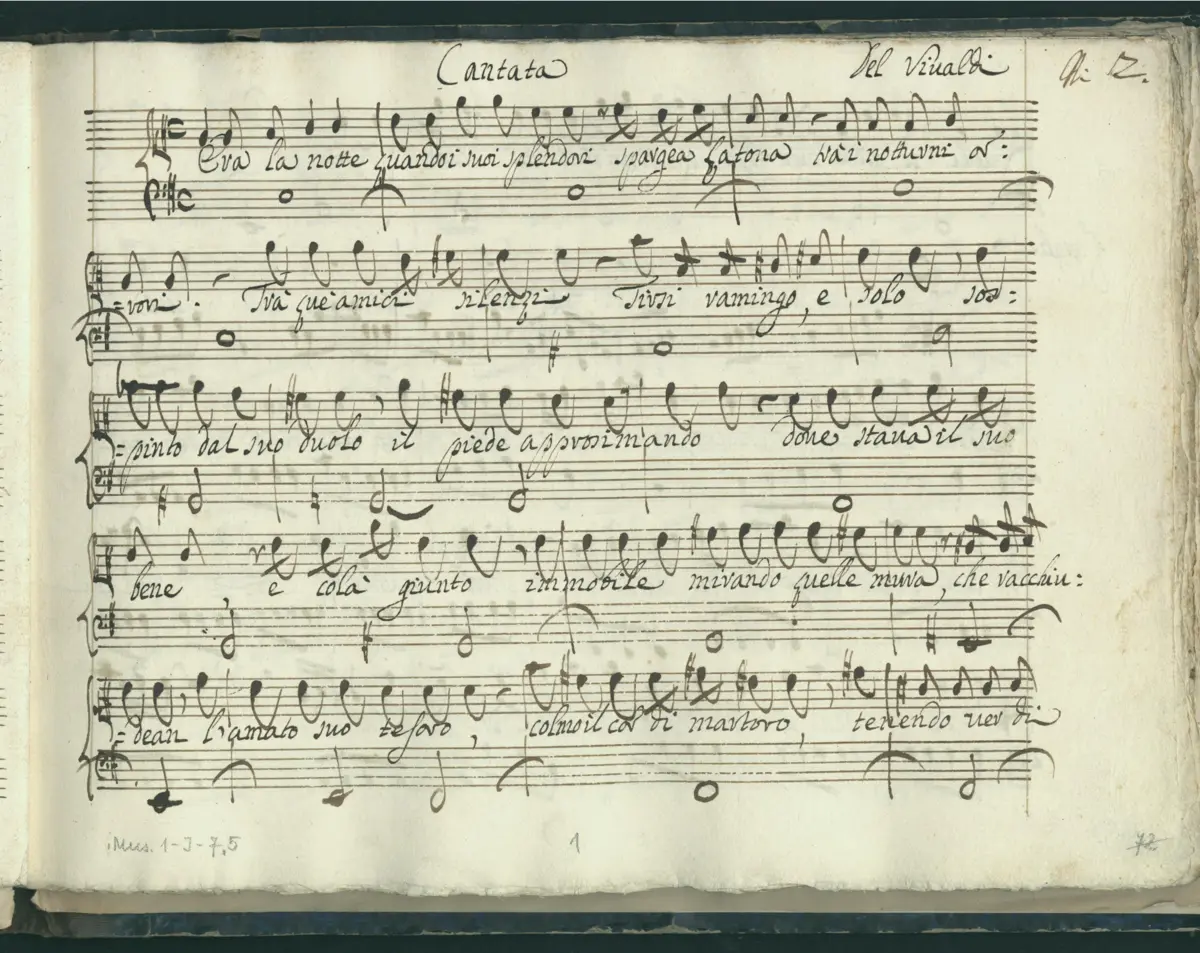 Cantata Del Vivaldi
Era la notte quando i suoi splendori spargea Latona trà i notturni or:
=rori. Trà que amici silenzi Tirsi ramingo, e solo sos=
=pinto dal suo duolo il piede approsimando dove stava il suo
bene, e colà giunto immobile mirando quelle mura, che racchiu:
=dean l'amato suo tesoro, colmo il cor di martoro, tenendo ver di
Mus. 1-J-7,5 1 72